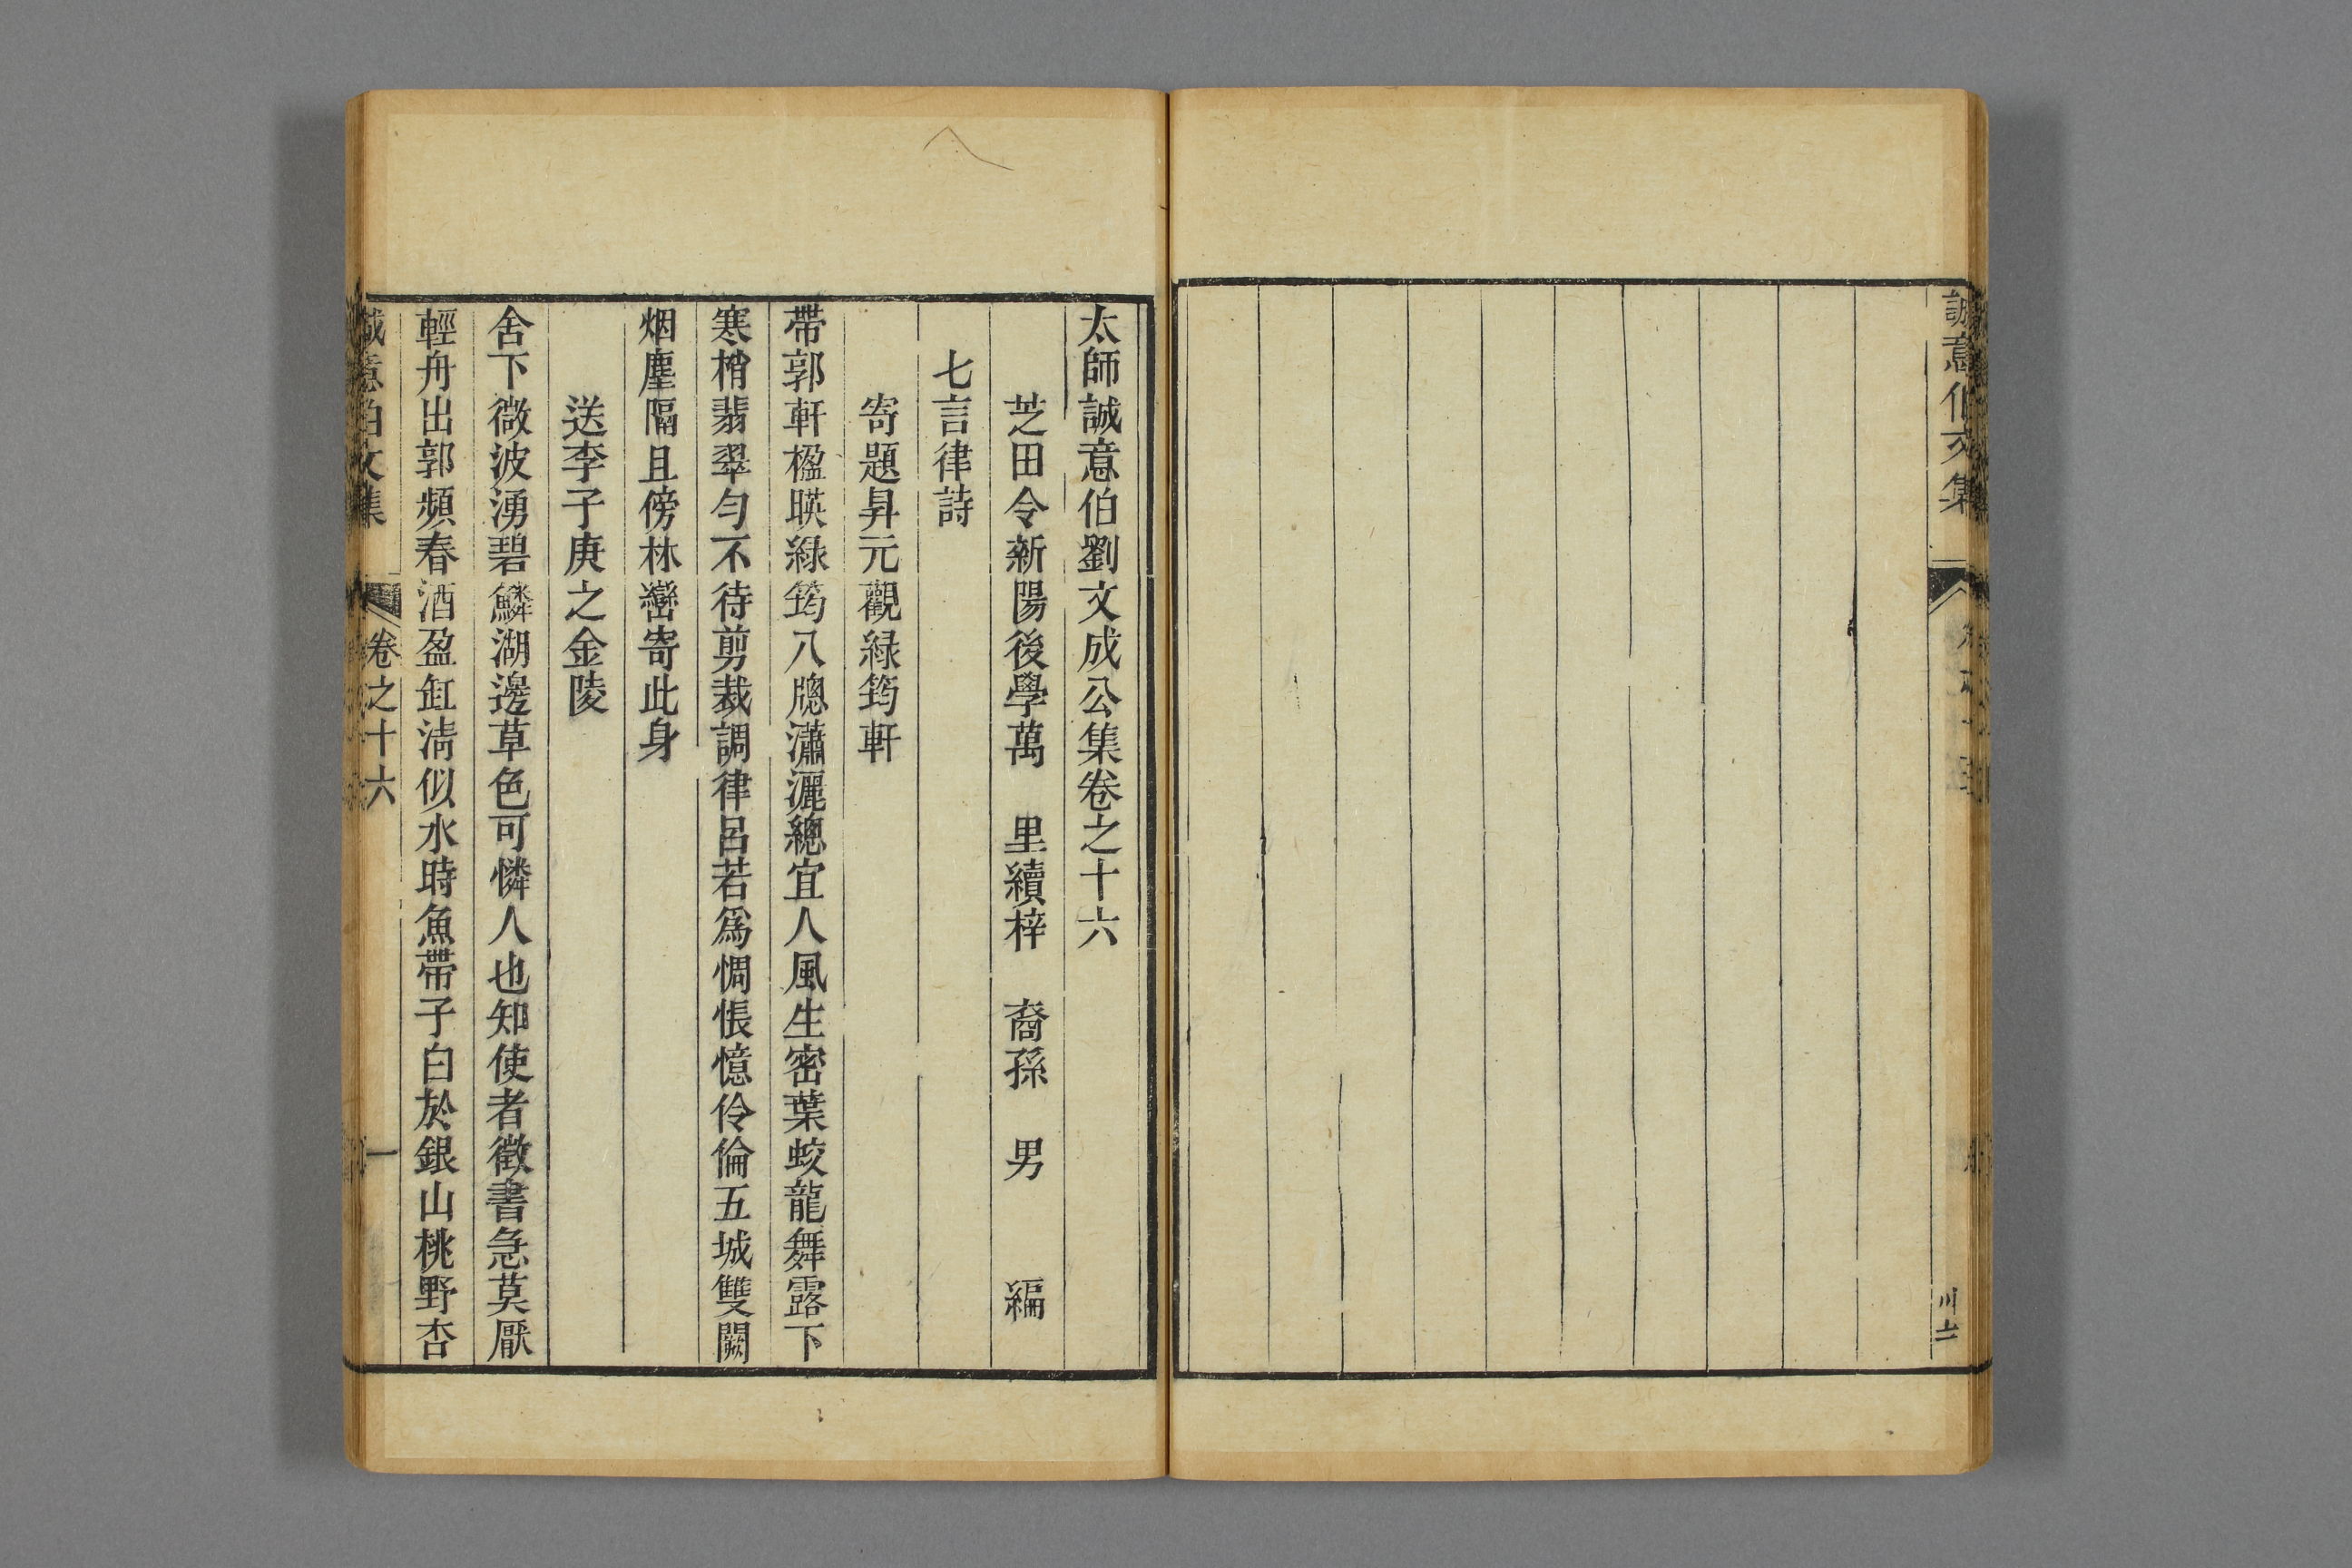 誠意伯文集
太師誠意伯劉文成公集卷之十六
芝田令新陽後學萬　里續梓　裔孫　男　　編
七言律詩
寄題昇元觀緑筠軒
帶郭軒楹暎緑筠八牕瀟灑總宜人風生密葉蛟龍舞露下
寒梢翡翠勻不待剪裁調律呂若爲惆悵憶伶倫五城雙闕
烟塵隔且傍林巒寄此身
送李子庚之金陵
舍下微波湧碧鱗湖邊草色可憐人也知使者徵書急莫厭
輕舟出郭頻春酒盈缸淸似水時魚帶子白於銀山桃野杏
誠意伯文集　卷之十六　一